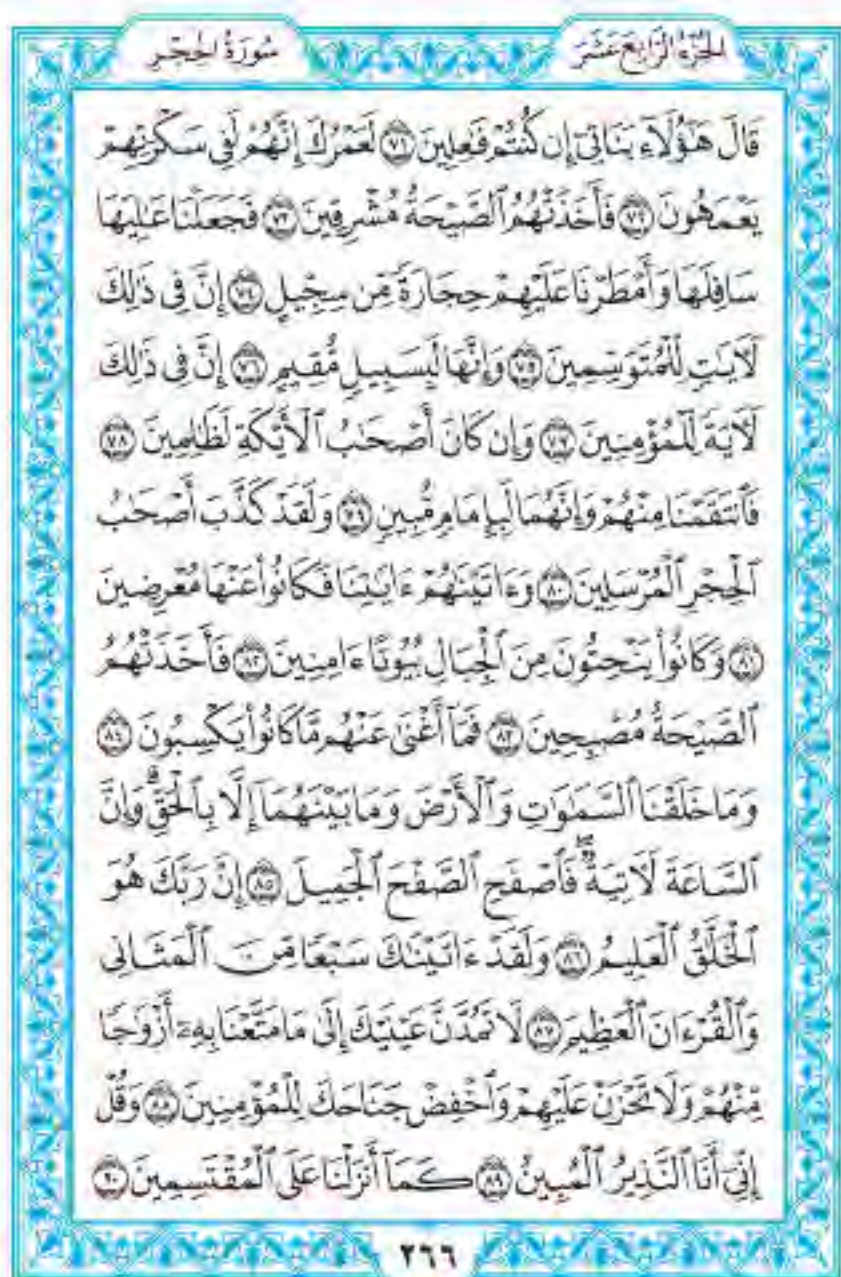 الجُزْءُ الرَّابِعَ عَشَرَ
سُورَةُ الحِجْرِ
قَالَ هَٰٓؤُلَآءِ بَنَاتِيٓ إِن كُنتُمْ فَٰعِلِينَ ٧١ لَعَمْرُكَ إِنَّهُمْ لَفِي سَكْرَتِهِمْ
يَعْمَهُونَ ٧٢ فَأَخَذَتْهُمُ ٱلصَّيْحَةُ مُشْرِقِينَ ٧٣ فَجَعَلْنَا عَٰلِيَهَا
سَافِلَهَا وَأَمْطَرْنَا عَلَيْهِمْ حِجَارَةً مِّن سِجِّيلٍ ٧٤ إِنَّ فِي ذَٰلِكَ
لَأٓيَٰتٍ لِّلْمُتَوَسِّمِينَ ٧٥ وَإِنَّهَا لَبِسَبِيلٍ مُّقِيمٍ ٧٦ إِنَّ فِي ذَٰلِكَ
لَأٓيَةً لِّلْمُؤْمِنِينَ ٧٧ وَإِن كَانَ أَصْحَٰبُ ٱلْأَيْكَةِ لَظَٰلِمِينَ ٧٨
فَٱنتَقَمْنَا مِنْهُمْ وَإِنَّهُمَا لَبِإِمَامٍ مُّبِينٍ ٧٩ وَلَقَدْ كَذَّبَ أَصْحَٰبُ
ٱلْحِجْرِ ٱلْمُرْسَلِينَ ٨٠ وَءَاتَيْنَٰهُمْ ءَايَٰتِنَا فَكَانُوا۟ عَنْهَا مُعْرِضِينَ
٨١ وَكَانُوا۟ يَنْحِتُونَ مِنَ ٱلْجِبَالِ بُيُوتًا ءَامِنِينَ ٨٢ فَأَخَذَتْهُمُ
ٱلصَّيْحَةُ مُصْبِحِينَ ٨٣ فَمَآ أَغْنَىٰ عَنْهُم مَّا كَانُوا۟ يَكْسِبُونَ ٨٤
وَمَا خَلَقْنَا ٱلسَّمَٰوَٰتِ وَٱلْأَرْضَ وَمَا بَيْنَهُمَآ إِلَّا بِٱلْحَقِّ ۗ وَإِنَّ
ٱلسَّاعَةَ لَأٓتِيَةٌ ۖ فَٱصْفَحِ ٱلصَّفْحَ ٱلْجَمِيلَ ٨٥ إِنَّ رَبَّكَ هُوَ
ٱلْخَلَّٰقُ ٱلْعَلِيمُ ٨٦ وَلَقَدْ ءَاتَيْنَٰكَ سَبْعًا مِّنَ ٱلْمَثَانِي
وَٱلْقُرْءَانَ ٱلْعَظِيمَ ٨٧ لَا تَمُدَّنَّ عَيْنَيْكَ إِلَىٰ مَا مَتَّعْنَا بِهِۦٓ أَزْوَٰجًا
مِّنْهُمْ وَلَا تَحْزَنْ عَلَيْهِمْ وَٱخْفِضْ جَنَاحَكَ لِلْمُؤْمِنِينَ ٨٨ وَقُلْ
إِنِّيٓ أَنَا ٱلنَّذِيرُ ٱلْمُبِينُ ٨٩ كَمَآ أَنزَلْنَا عَلَى ٱلْمُقْتَسِمِينَ ٩٠
٢٦٦